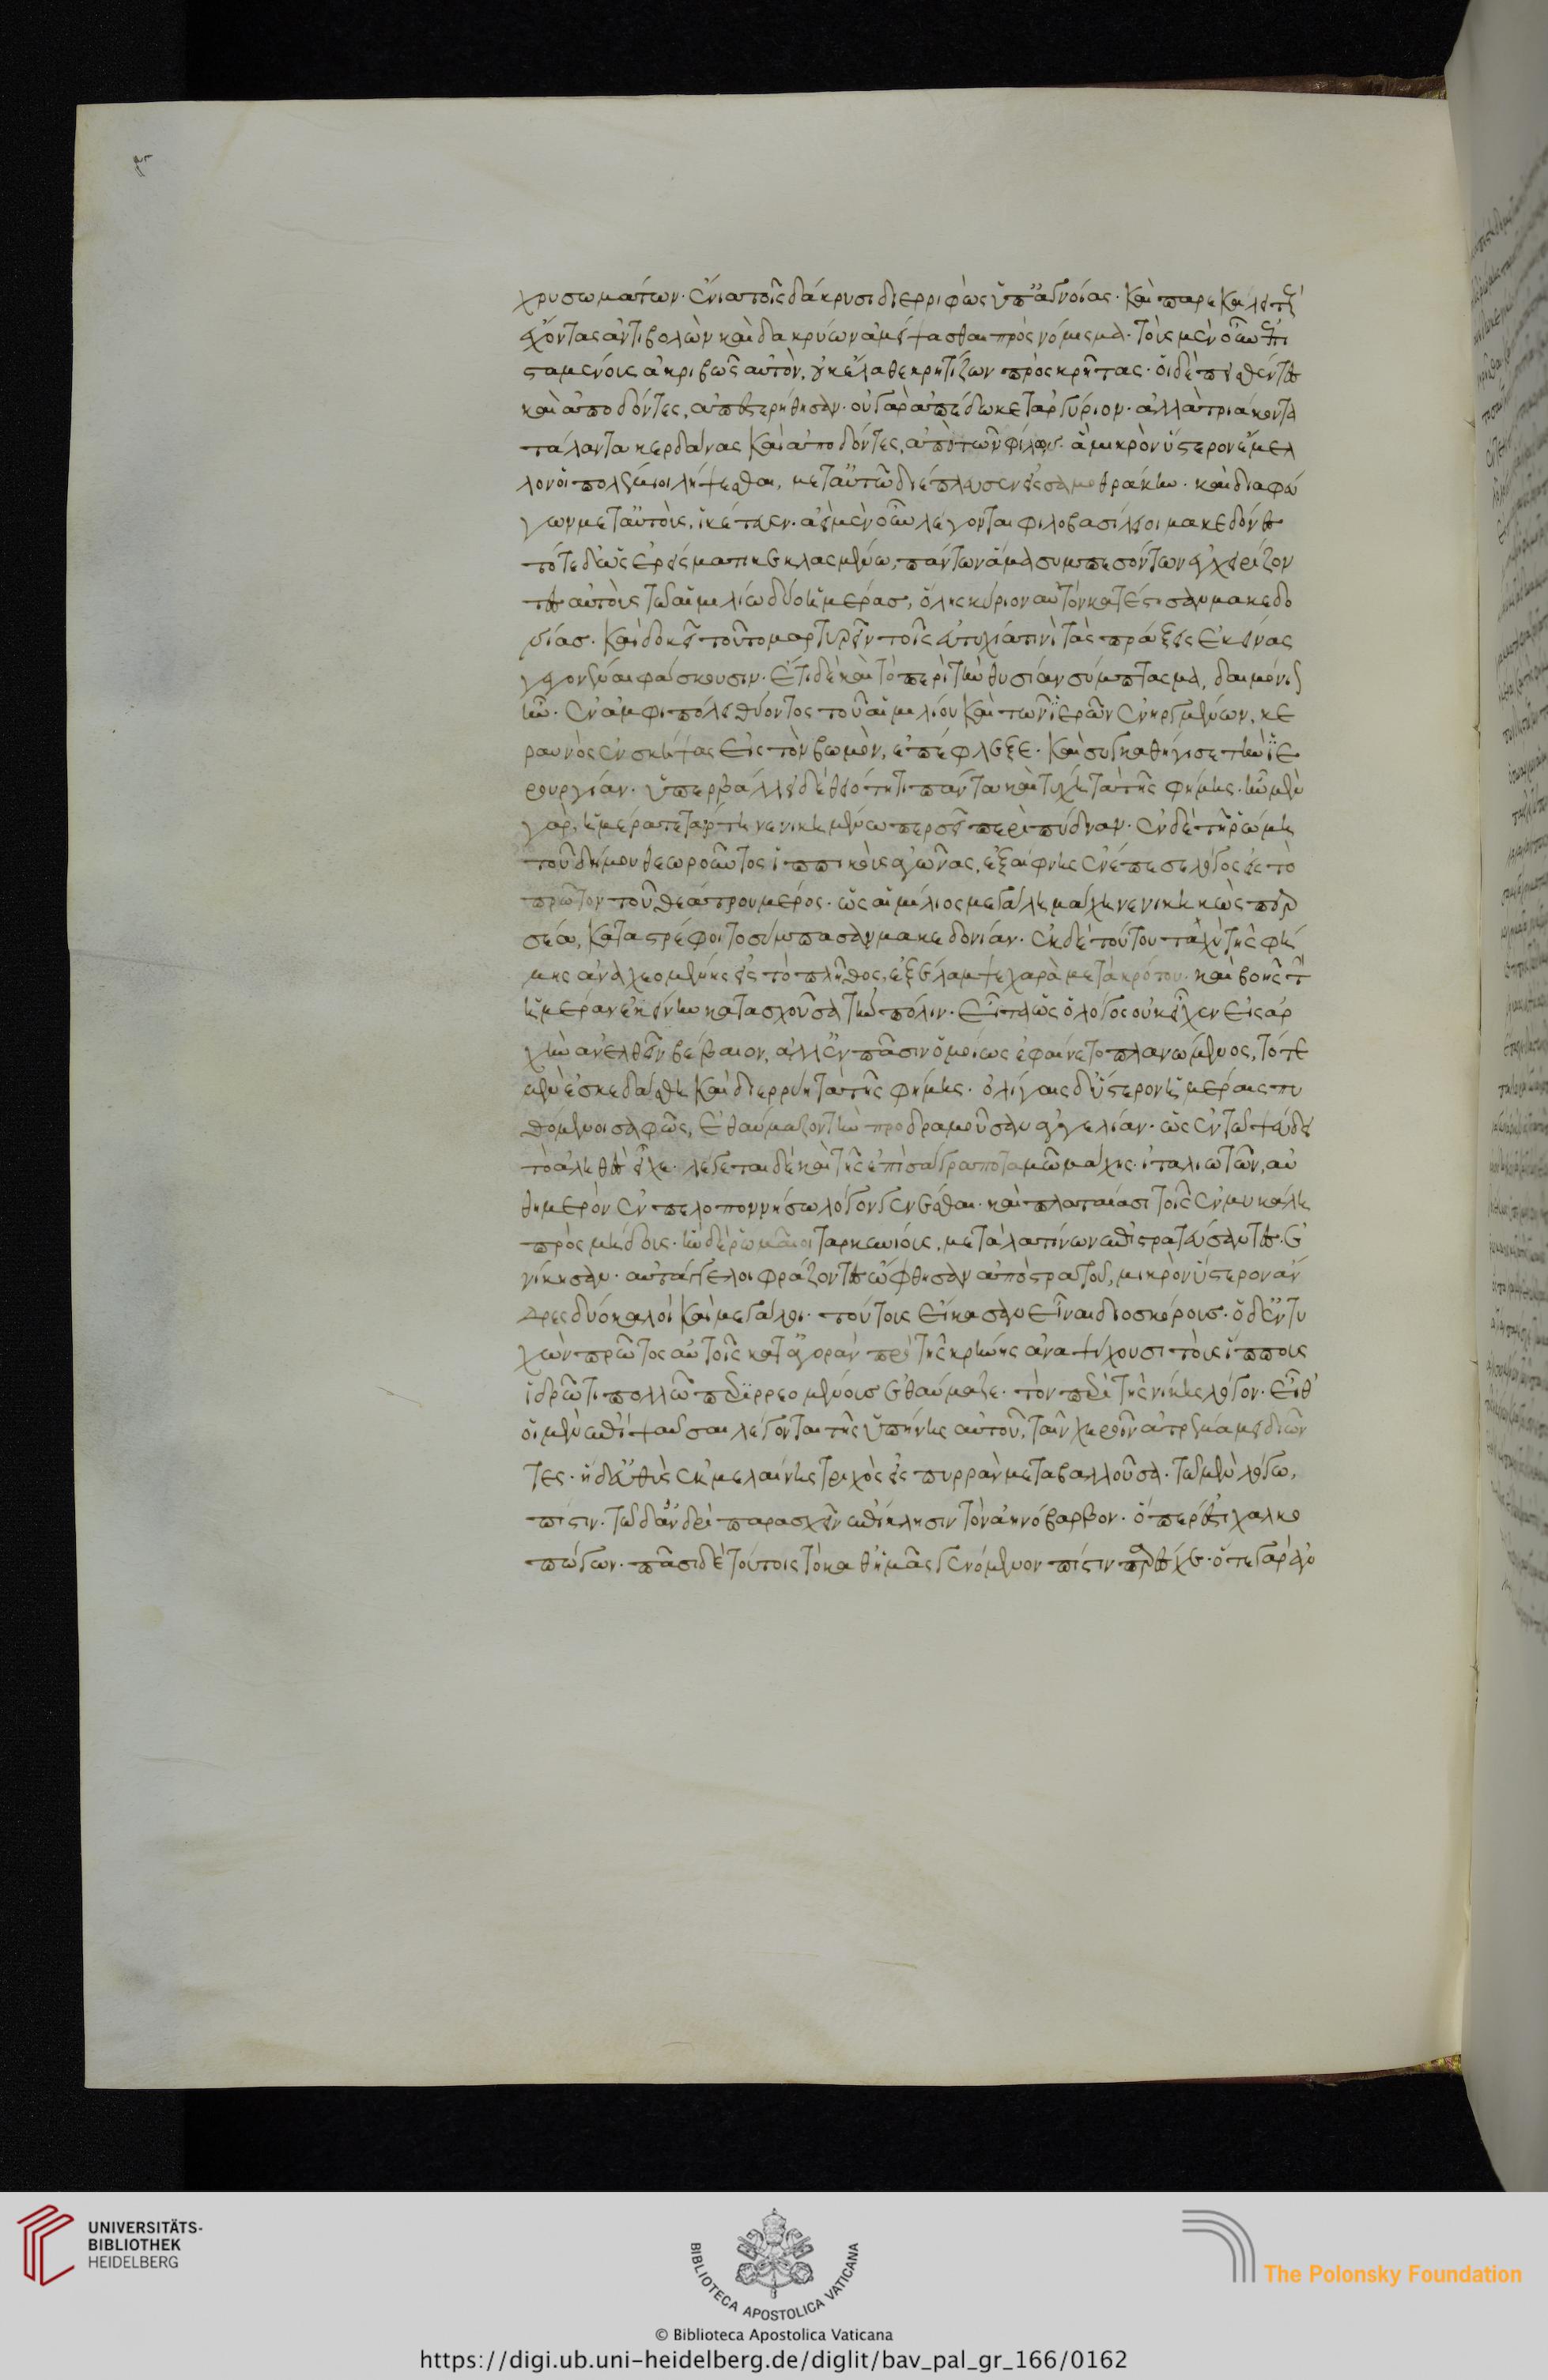 χρυσωμάτων· ἔνια τοῖς δάκρυσι διερριφὼς ὑπ' ἀγνοίας· καὶ παρεκάλει τοὺς
ἔχοντας ἀντιβολῶν καὶ δακρύων ἀμείψασθαι πρὸς νόμισμα· τοὺς μὲν οὖν ἐπι
σταμένους ἀκριβῶς αὐτὸν, οὐκ ἔλαθε κρητίζων πρὸς κρῆτας· οἱ δὲ πεισθέντες
καὶ ἀποδόντες, ἀπεστερήθησαν· οὐ γὰρ ἀπέδωκε τἀργύριον· ἀλλὰ τριάκοντα
τάλαντα κερδάνας καὶ ἀποδόντες, ἀπὸ τῶν φίλων· ἃ μικρὸν ὕστερον ἔμελ
λον οἱ πολέμιοι λήψεσθαι, μετ' αὐτῶν διέπλευσεν εἰς σαμοθράκην· καὶ διαφεύ
γων μετ' αὐτοὺς, ἱκέτευεν· ἀεὶ μὲν οὖν λέγονται φιλοβασίλειοι μακεδόνες
τότε δ' ὡς ἐρείσματι κεκλασμένω, πάντων ἅμα συμπεσόντων ἐγχειρίζον
τες αὐτοὺς τῶ αἰμιλίω δύο ἡμέρας, ὅλης κύριον αὐτὸν κατέστησαν μακεδο
νίας· καὶ δοκεῖ τοῦτο μαρτυρεῖν τοῖς εὐτυχία τινὶ τὰς πράξεις ἐκείνας
γεγονέναι φάσκουσιν· ἔτι δὲ καὶ τὸ περὶ τὴν θυσίαν σύμπτωμα, δαιμόνιον
ἦν· ἐν ἀμφιπόλει θύοντος τοῦ αἰμιλίου καὶ τῶν ἱερῶν ἐνηργμένων, κε
ραυνὸς ἐνσκήψας εἰς τὸν βωμὸν, ἐπέφλεξε· καὶ συγκαθήγισε τὴν ἱε
ρουργίαν· ὑπερβάλλει δὲ θειότητι πάντα καὶ τύχη τὰ τῆς φήμης· ἦν μὲν
γὰρ, ἡμέρα τετάρτη νενικημένω περσεῖ περὶ πύδναν· ἐν δὲ τῆ ρώμη
τοῦ δήμου θεωροῦντος ἱππικοὺς ἀγῶνας, ἐξαίφνης ἐνέπεσε λόγος εἰς τὸ
πρῶτον τοῦ θεάτρου μέρος· ὡς αἰμίλιος μεγάλη μάχη νενικηκὼς περ
σέα, καταστρέφοιτο σύμπασαν μακεδονίαν· ἐκ δὲ τούτου ταχὺ τῆς φή
μης ἀναχεομένης εἰς τὸ πλῆθος, ἐξέλαμψε χαρὰ μετὰ κρότου· καὶ βοῆς τὴν
ἡμέραν ἐκείνην κατασχοῦσα τὴν πόλιν· εἶτα ὡς ὁ λόγος οὐκ εἶχεν εἰς ἀρ
χὴν ἀνελθεῖν βέβαιον, ἀλλ' ἐν πᾶσιν ὁμοίως ἐφαίνετο πλανώμενος, τότε
μὲν ἐσκεδάσθη καὶ διερρύη τὰ τῆς φήμης· ὀλίγαις δ' ὕστερον ἡμέραις πυ
θόμενοι σαφῶς, ἐθαύμαζον τὴν προδραμοῦσαν ἀγγελίαν· ὡς ἐν τῶ ψεύδει
τὸ ἀληθὲς εἶχε· λέγεται δὲ καὶ τῆς ἐπὶ σάγρα ποταμῶ μάχης· ἰταλιωτῶν, αὐ
θημερὸν ἐν πελοποννήσω λόγον γενέσθαι· καὶ πλαταιάσι τοῖς ἐν μυκάλη
πρὸς μήδους· ἣν δὲ ῥωμαῖοι ταρκυνίους, μετὰ λατίνων ἐπιστρατεύσαντες· ἐ
νίκησαν· αὐτάγγελοι φράζοντες ὤφθησαν ἀπὸ στρατοῦ, μικρὸν ὕστερον ἄν
δρες δύο καλοὶ καὶ μεγάλοι· τούτους εἴκασαν εἶναι διοσκόρους· ὁ δ' ἐντυ
χὼν πρῶτος αὐτοῖς κατ' ἀγορὰν πρὸ τῆς κρήνης ἀναψύχουσι τοὺς ἵππους
ἱδρῶτι πολλῶ περιρρεομένους ἐθαύμαζε· τὸν περὶ τῆς νίκης λόγον· εἶθ'
οἱ μὲν ἐπιψαῦσαι λέγονται τῆς ὑπήνης αὐτοῦ, ταῖν χεροῖν ἀτρέμα μειδιῶν
τες· ἡ δ' εὐθὺς ἐκ μελαίνης τριχὸς εἰς πυρρὰν μεταβαλλοῦσα· τῶ μὲν λόγω,
πίστιν· τῶ δ' ἀνδρὶ παρασχεῖν ἐπίκλησιν τὸν ἀηνόβαρβον· ὅπερ ἐστὶ χαλκο
πώγων· πᾶσι δὲ τούτοις τὸ καθ' ἡμᾶς γενόμενον πίστιν παρέσχε· ὅτε γὰρ ἀν
UNIVERSITÄTS-
BIBLIOTHEK
HEIDELBERG
BIBLIOTECA APOSTOLICA VATICANA
The Polonsky Foundation
© Biblioteca Apostolica Vaticana
https://digi.ub.uni-heidelberg.de/diglit/bav_pal_gr_166/0162